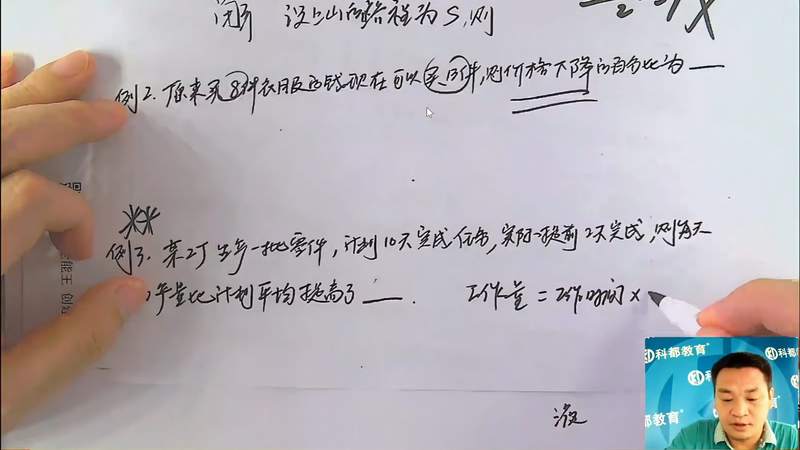 设上山的路程为S,则
例2. 原来买8件衣服的钱现在可以买10件,则价格下降的百分比为
例3. 某工厂生产一批零件,计划10天完成任务,实际提前2天完成,则每天
产量比计划平均提高了 .
工作量 = 工作时间 ×
科都教育
科都教育
都教育